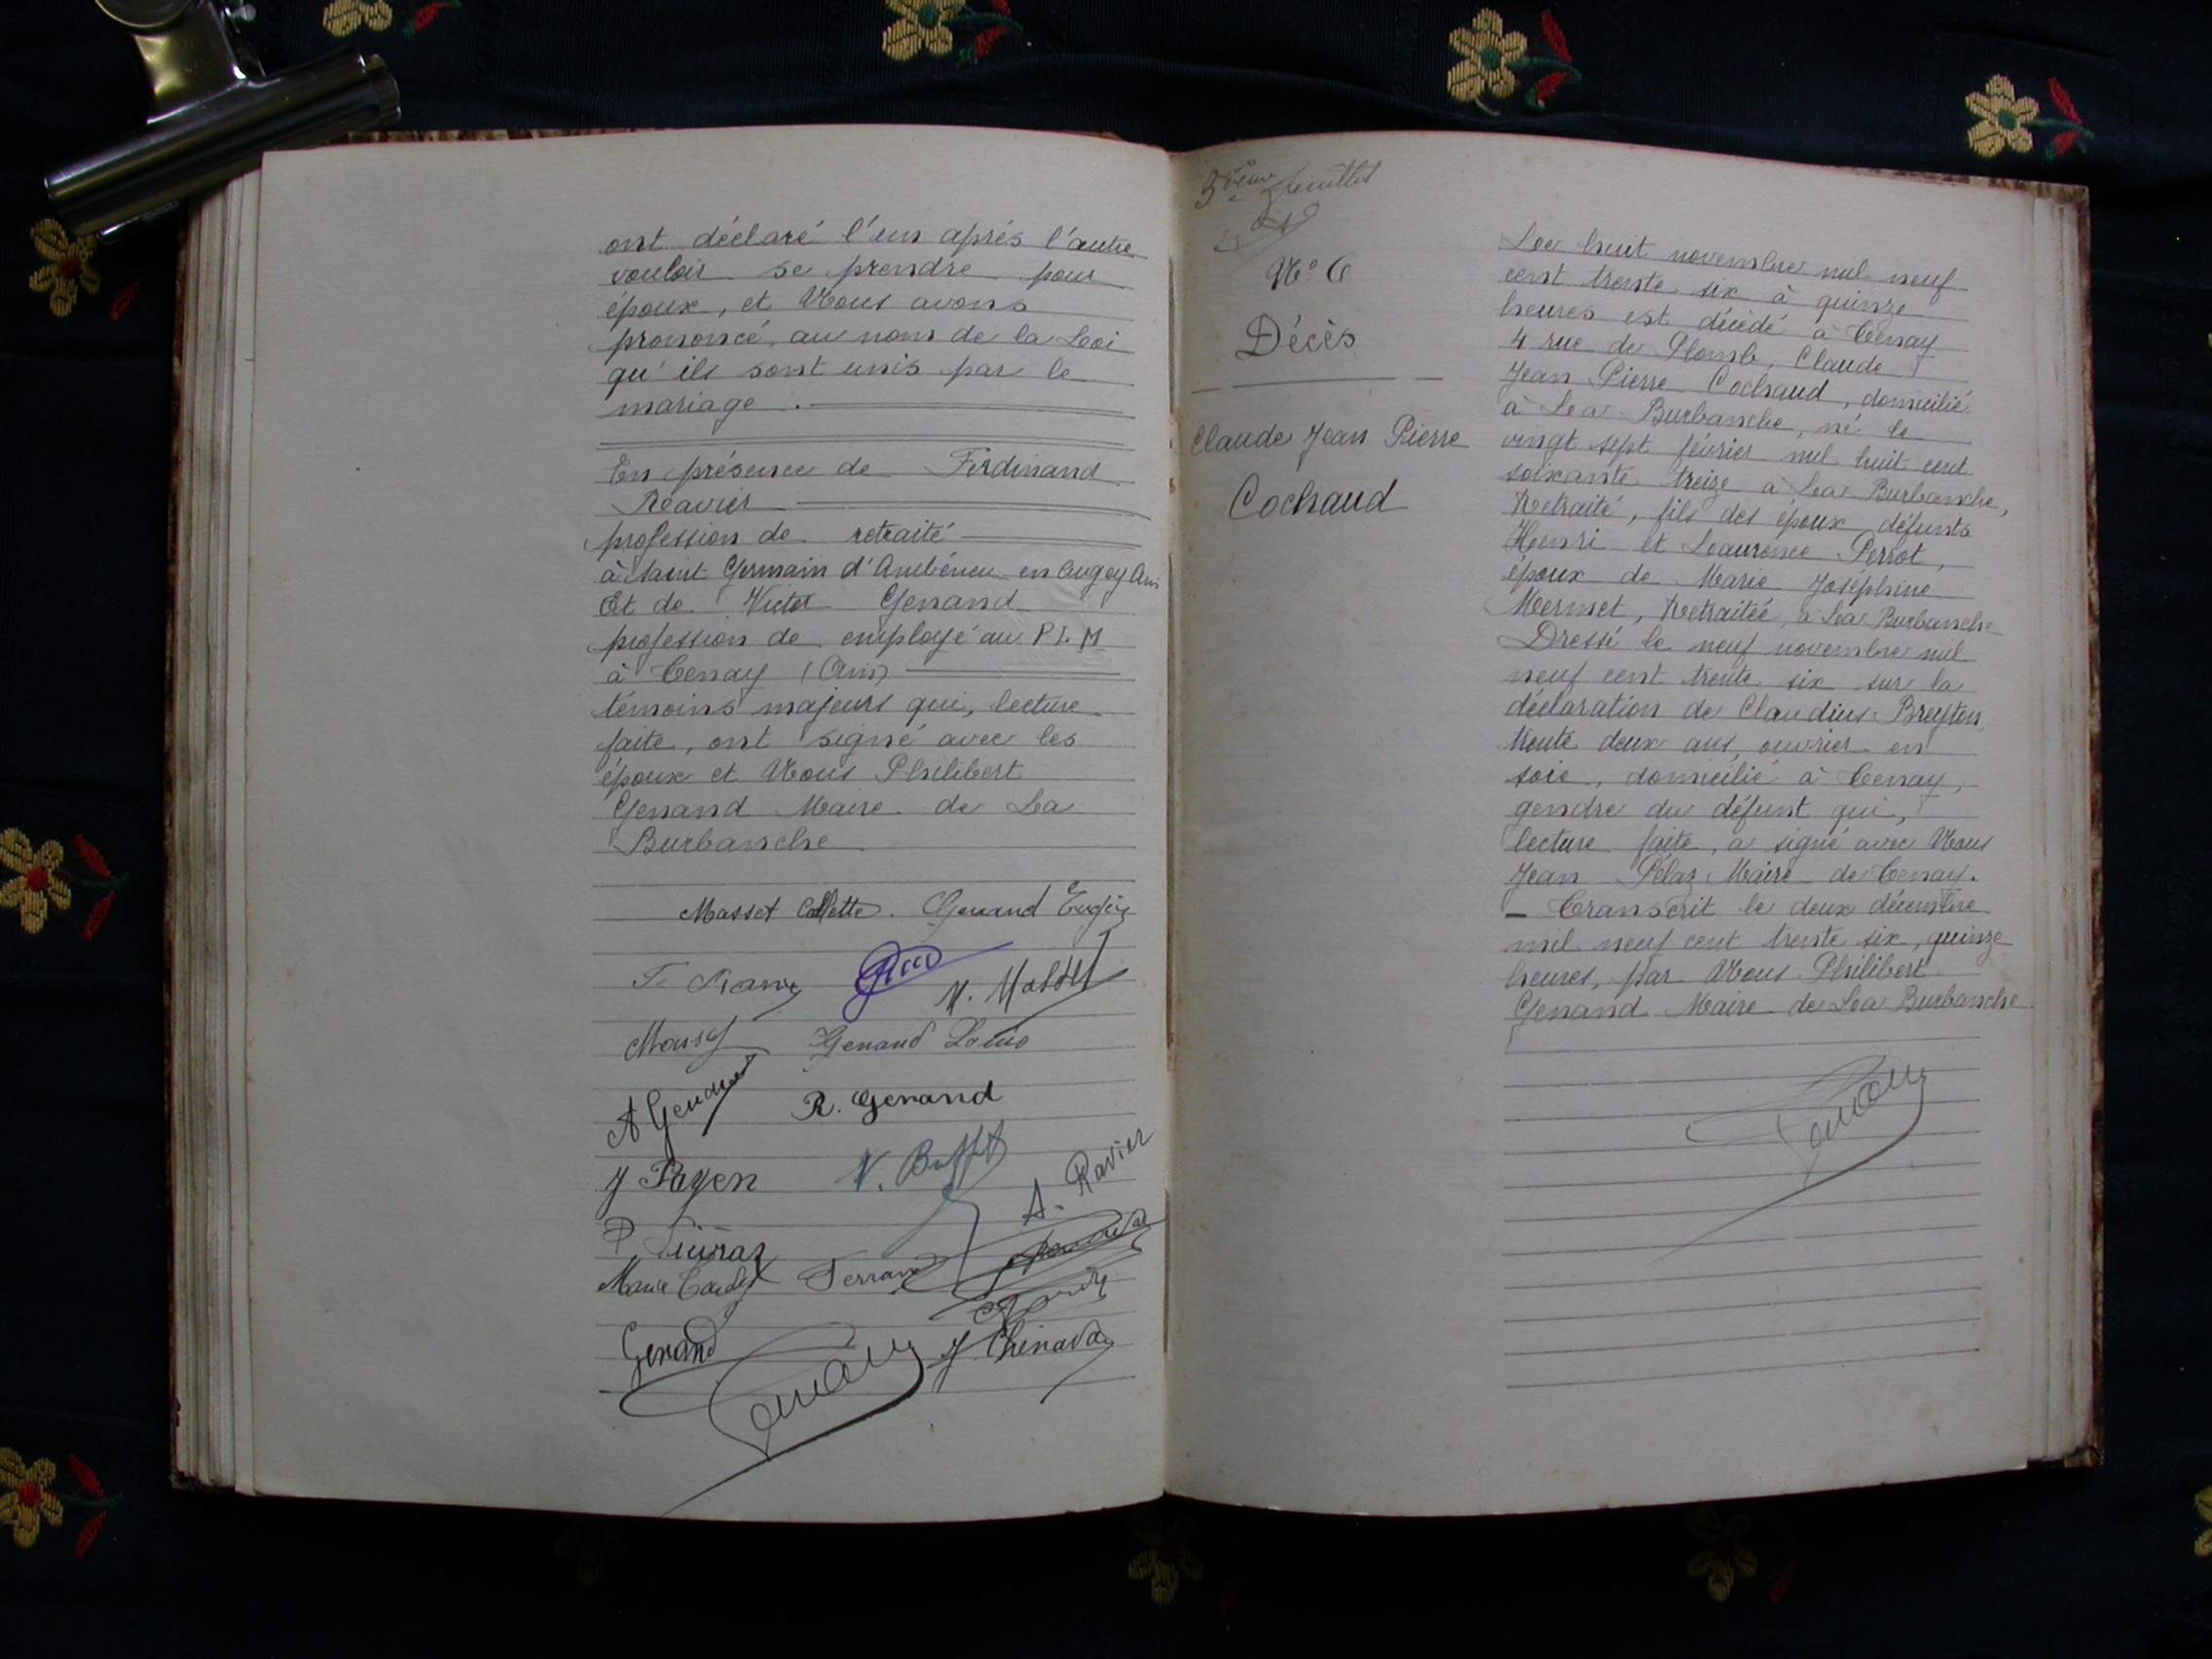 ont déclaré l'un après l'autre
vouloir se prendre pour
époux, et Nous avons
prononcé, au nom de la Loi
qu'ils sont unis par le
mariage.
En présence de Ferdinand
Ravier
profession de retraité
à Saint Germain d'Ambérieu-en Bugey Ain
Et de Victor Genand
profession de employé au P.L.M
à Tenay (Ain)
témoins majeurs qui, lecture
faite, ont signé avec les
époux et Nous Philibert
Genand Maire de La
Burbanche
Masset Collette. Genand
N. Masset
Genand Louis
A Genand R. Genand
J Payen N. Buffet
A. Ravier
Marie Ferrand
Genand J Chinard
5ème feuillet
N° 6
Décès
Claude Jean Pierre
Cochaud
Le huit novembre mil neuf
cent trente six à quinze
heures est décédé à Tenay
4 rue du Plomb, Claude
Jean Pierre Cochaud, domicilié
à La Burbanche, né le
vingt sept février mil huit cent
soixante treize à La Burbanche,
Retraité, fils des époux défunts
Henri et Laurence Perrot,
époux de Marie Joséphine
Mermet, Retraitée, à La Burbanche
Dressé le neuf novembre mil
neuf cent trente six sur la
déclaration de Claudius Breyton,
trente deux ans, ouvrier en
soie, domicilié à Tenay,
gendre du défunt qui,
lecture faite, a signé avec Nous
Jean Pélaz Maire de Tenay.
– Transcrit le deux décembre
mil neuf cent trente six, quinze
heures, par Nous Philibert
Genand Maire de La Burbanche
Genand